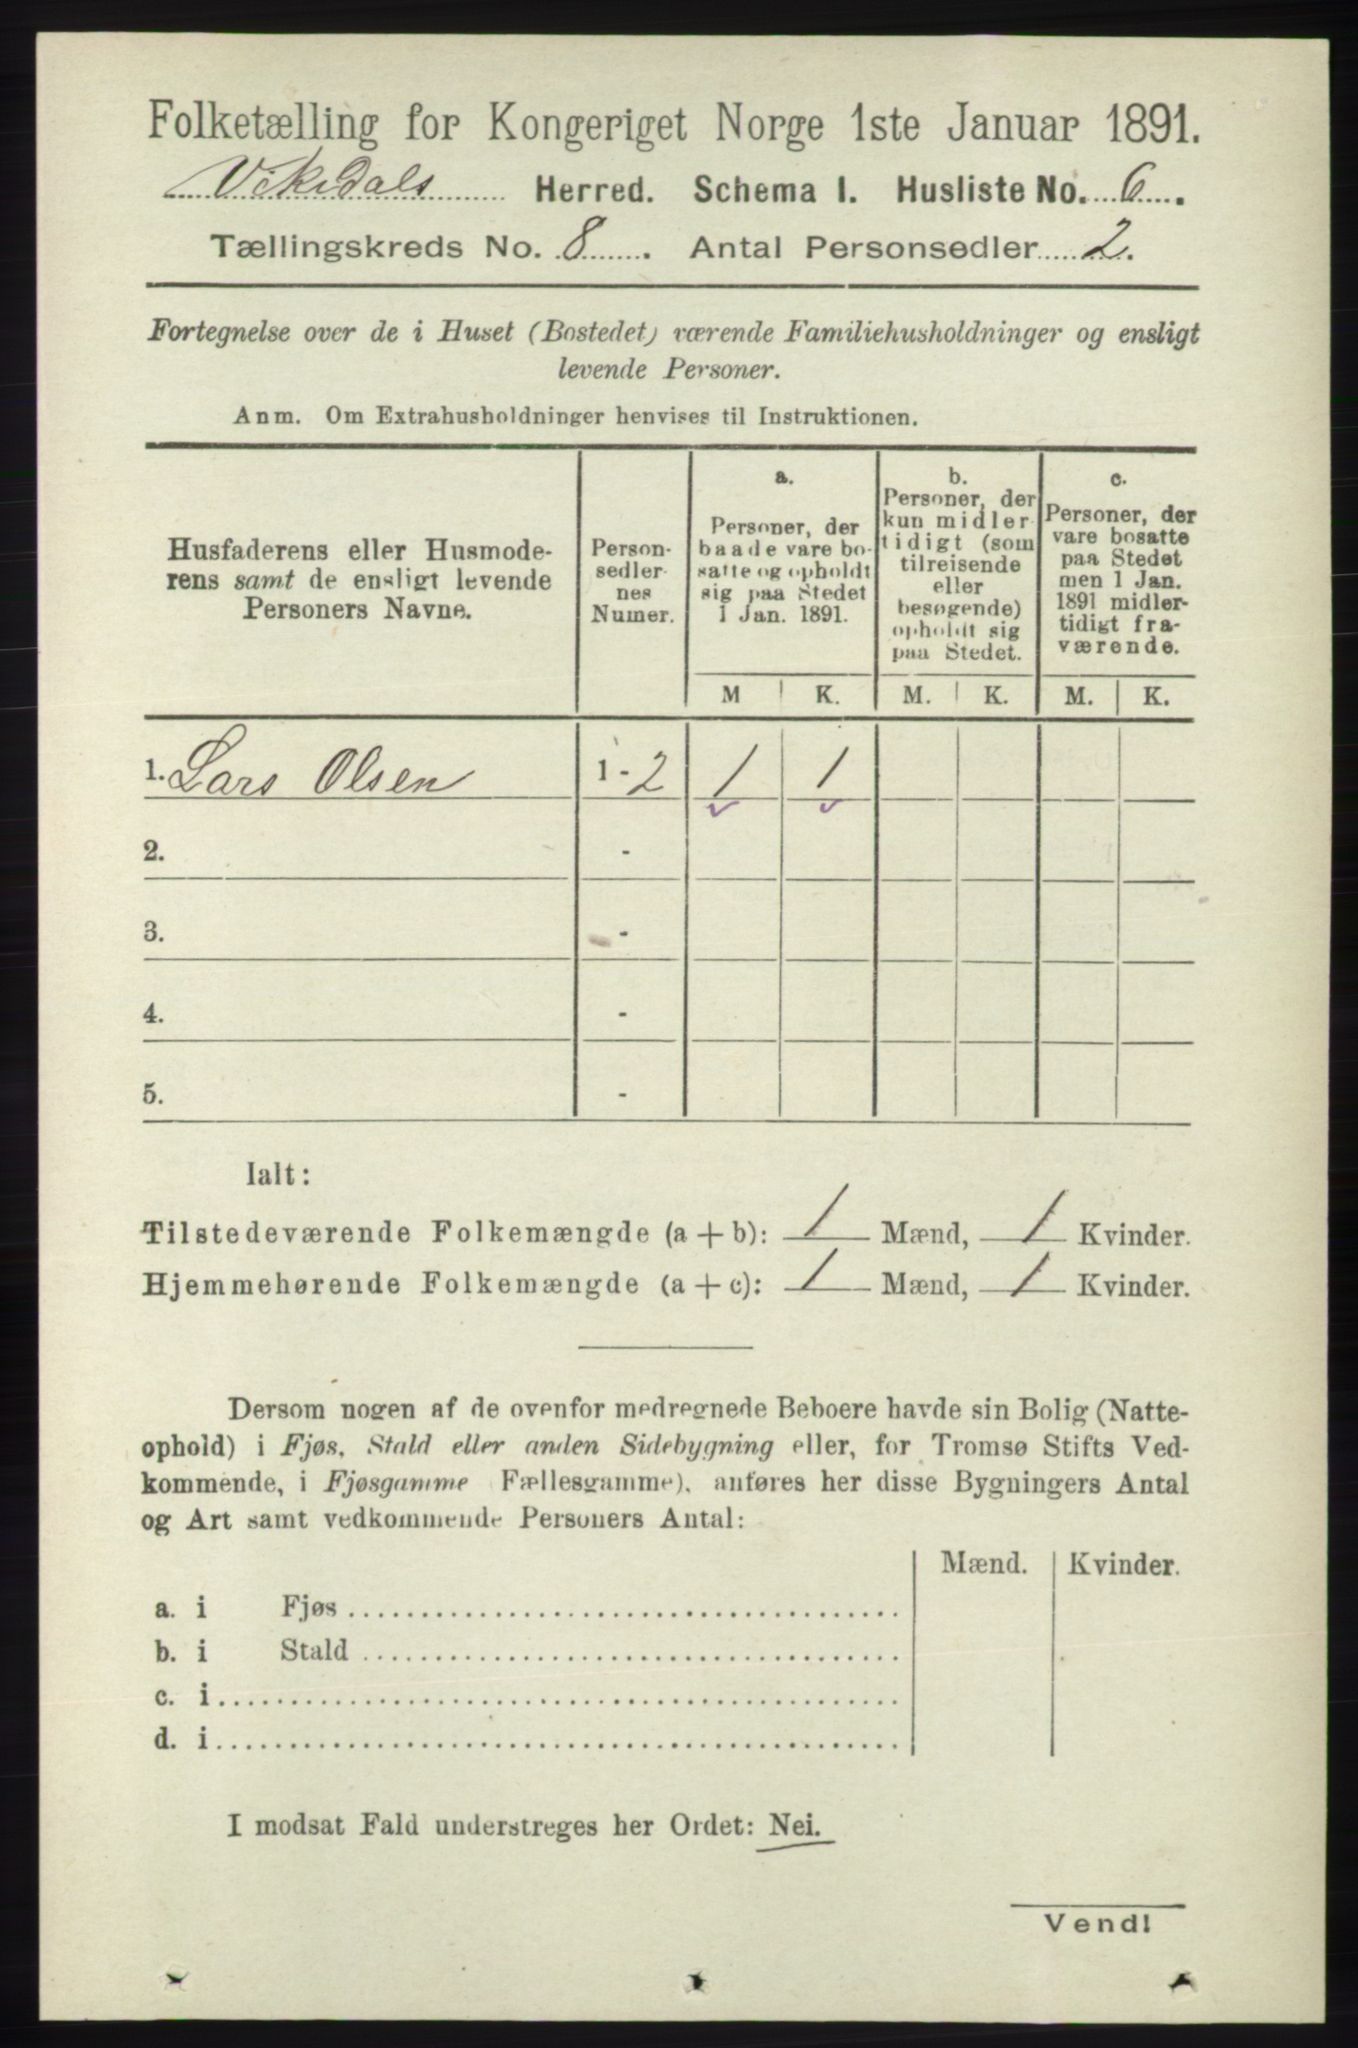 Folketælling for Kongeriget Norge 1ste Januar 1891.
Vikedals Herred. Schema I. Husliste No. 6.
Tællingskreds No. 8. Antal Personsedler 2.
Fortegnelse over de i Huset (Bostedet) værende Familiehusholdninger og ensligt
levende Personer.
Anm. Om Extrahusholdninger henvises til Instruktionen.
Husfaderens eller Husmode-
rens samt de ensligt levende
Personers Navne.
Person-
sedler-
nes
Numer.
a.
Personer, der
baade vare bo-
satte og opholdt
sig paa Stedet
1 Jan. 1891.
b.
Personer, der
kun midler-
tidigt (som
tilreisende
eller
besøgende)
opholdt sig
paa Stedet.
c.
Personer, der
vare bosatte
paa Stedet
men 1 Jan.
1891 midler-
tidigt fra-
værende.
M K. M. K. M. K.
1. Lars Olsen 1 - 2 1 1
2. -
3. -
4. -
5. -
Ialt:
Tilstedeværende Folkemængde (a + b): 1 Mænd, 1 Kvinder.
Hjemmehørende Folkemængde (a + c): 1 Mænd, 1 Kvinder.
Dersom nogen af de ovenfor medregnede Beboere havde sin Bolig (Natte-
ophold) i Fjøs, Stald eller anden Sidebygning eller, for Tromsø Stifts Ved-
kommende, i Fjøsgamme Fællesgamme), anføres her disse Bygningers Antal
og Art samt vedkommende Personers Antal:
Mænd. Kvinder.
a. i Fjøs
b. i Stald
c. i
d. i
I modsat Fald understreges her Ordet: Nei.
Vend!